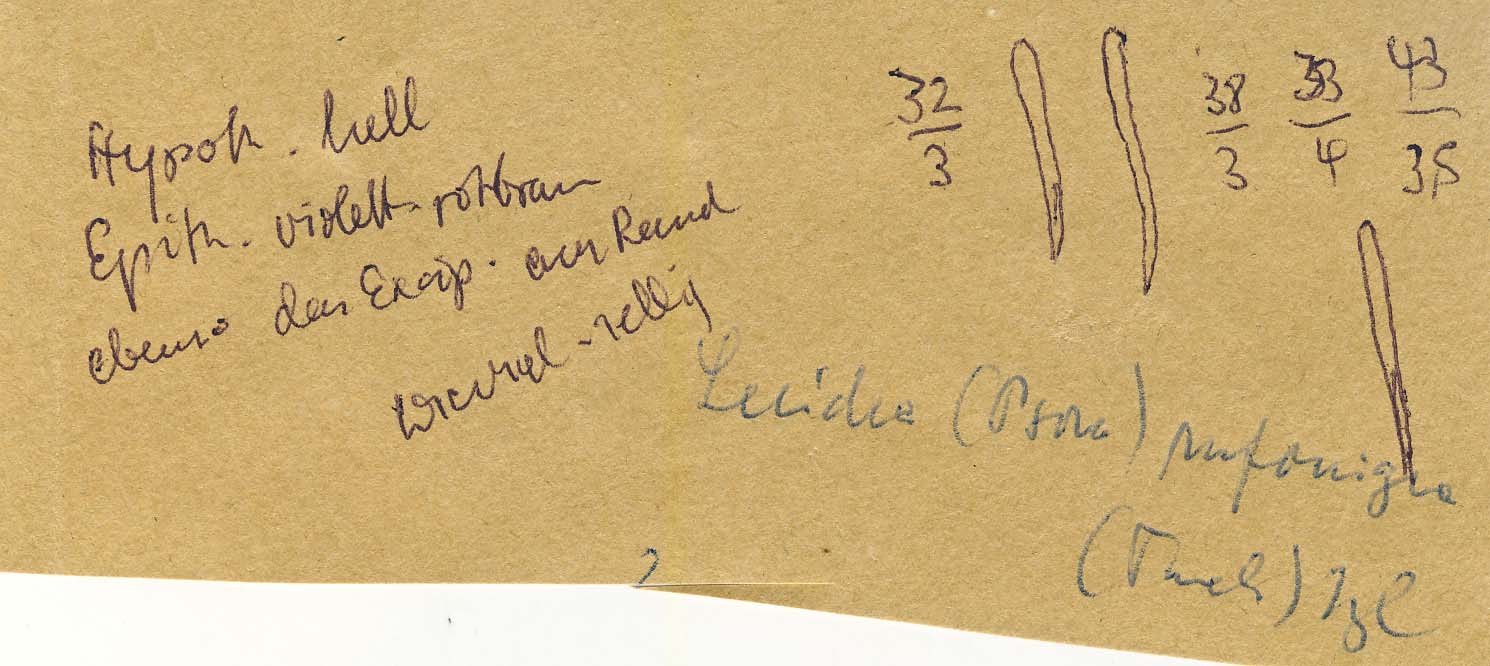 Hypoth. hell
Epith. violett-rotbraun
ebenso das Excip. am Rand
-zellig
32/3 38/3 33/4 43/3,5
Lecidea (Psora) rufonigra
(Tuck)